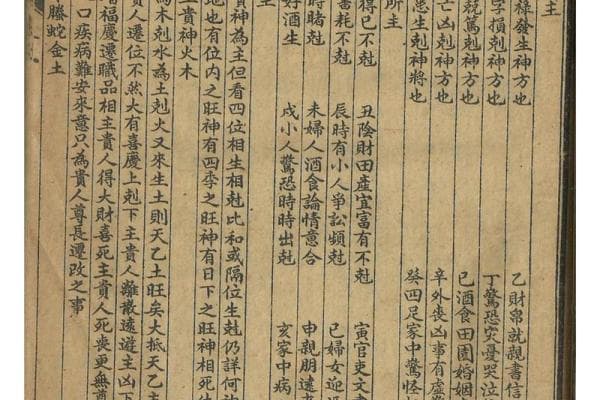 主
祿發生神方也
字損剋神方也　乙財帛就親書信
兢篤剋神方也　丁驚恐灾憂哭泣
亡凶剋神方也　已酒食田園婚姻
惡生剋神將也　辛外喪凶事有虛
癸四足家中驚怪
所主
得已不剋　丑陰財田產宜富有不剋　寅官吏文書
畜耗不剋　辰時有小人爭訟頻剋　已婦女迎
時賭剋　未婦人酒食論情意合　申親朋遠
好酒生　戌小人驚恐時時出剋　亥家中病
主
貴神為主但看四位相生相剋比和或隔位生剋仍詳何
地也有位内之旺神有四季之旺神有日下之旺神相死休
貴神火木
為木剋水為土剋火又來生土則天乙土旺矣大抵天乙主
人遷位不然大有喜慶上剋下主貴人離散遠遊主凶下
福慶遷職品相主貴人得大財喜死主貴人死喪更無
口疾病難安來意只為貴人尊長遷改之事
螣蛇金土